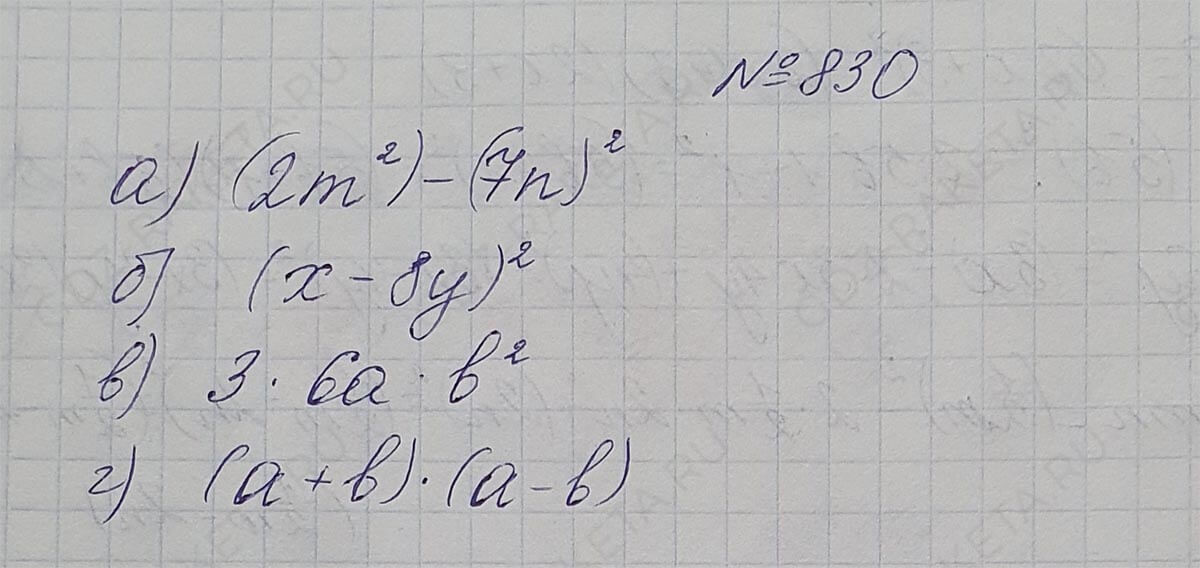 №830
а) (2m²)-(7n)²
б) (x-8y)²
в) 3·6a·b²
г) (a+b)·(a-b)